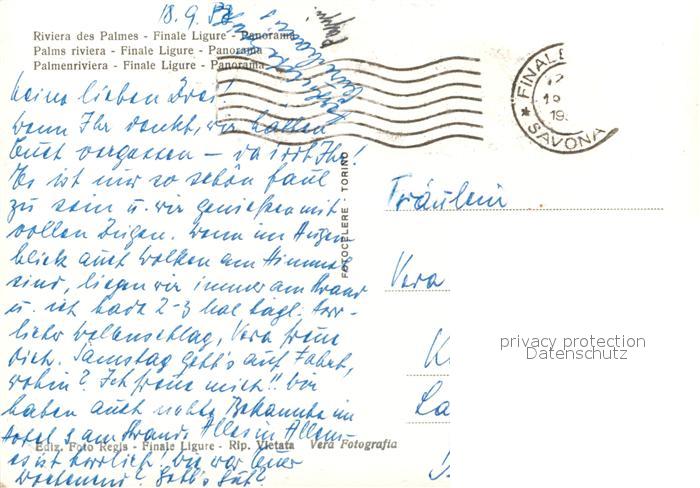 18.9.
Riviera des Palmes - Finale Ligure - Panorama
Palms riviera - Finale Ligure - Panorama
Palmenriviera - Finale Ligure - Panorama
Meine lieben Drei!
wenn Ihr denkt, wir hätten
Euch vergessen — da irrt Ihr!
Es ist nur so schön faul
zu sein u. wir genießen mit
vollen Zügen. Wenn im Augen
blick auch Wolken am Himmel
sind, liegen wir immer am Strand
u. ich bade 2-3 mal tägl. herr-
licher Wellenschlag, Vera freue
Dich. Samstag geht's auf Fahrt,
wohin? Ich freue mich!! Wir
haben auch nette Bekannte im
Hotel u. am Strand. Alles in Allem
Ediz. Foto Regis - Finale Ligure - Rip. Vietata Vera Fotografia
es ist herrlich! Wie war Euer
Wochenend? Geht's gut?
FOTOCELERE - TORINO
* FINALE
SAVONA
19
Fräulein
Vera
K
La
privacy protection
Datenschutz